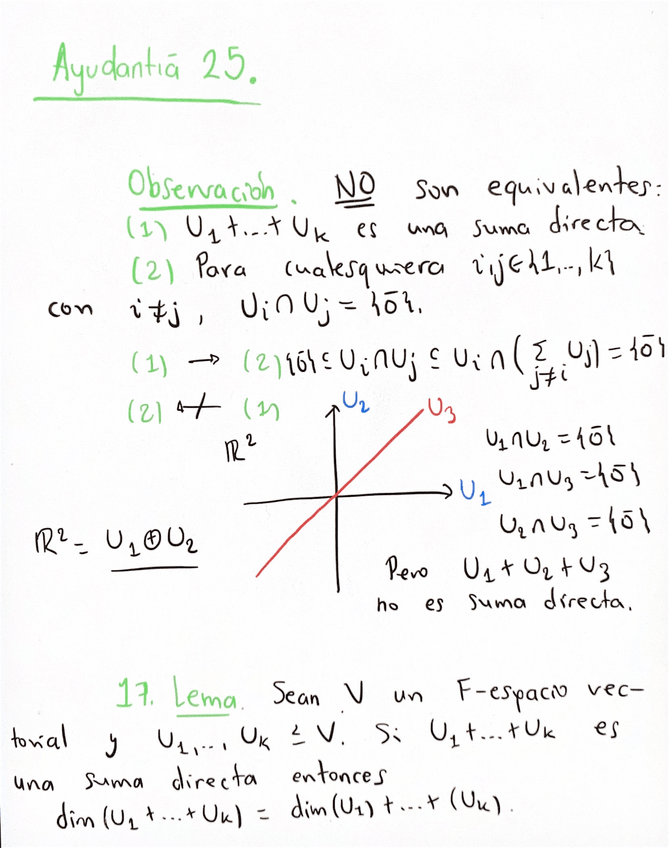 Ayudantía 25.
Observación. NO son equivalentes:
(1) U₁+...+Uₖ es una suma directa
(2) Para cualesquiera i,j∈{1,..,k}
con i≠j, Uᵢ∩Uⱼ={ō}.
(1) → (2) {ō}⊆Uᵢ∩Uⱼ⊆Uᵢ∩(∑_{j≠i} Uⱼ)={ō}
(2) ↛ (1)
U₂
U₃
ℝ²
U₁
U₁∩U₂={ō}
U₁∩U₃={ō}
U₂∩U₃={ō}
ℝ²= U₁⊕U₂
Pero U₁+U₂+U₃
no es suma directa.
17. Lema. Sean V un F-espacio vec-
torial y U₁,..,Uₖ ≤ V. Si U₁+...+Uₖ es
una suma directa entonces
dim(U₁+...+Uₖ) = dim(U₁)+...+(Uₖ).